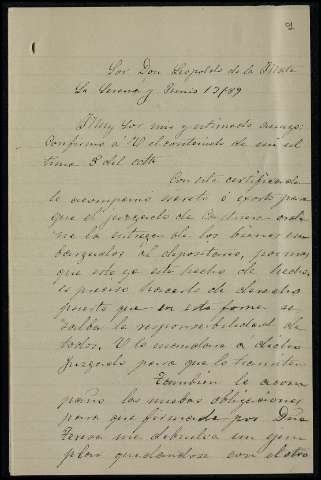 9
Sor. Don Leopoldo de la
La Serena y Junio 13/89
Muy Sor. mio y estimado amigo:
Confirmo á V. el contenido de mi ul
tima 8 del cotte
Con esta certificada
le acompaño exorto para
que el juzgado de orde
ne la entrega de los bienes em
bargados al depositario, por mas
que esto ya esta hecho de hecho,
es preciso hacerlo de derecho
puesto que en esta forma se
salva la responsabilidad de
todos. V. lo mandara a dicho
Juzgado para que lo tramiten
Tambien le acom
paño las nuevas obligaciones
para que firmada por Dña
Teresa me debuelva un ejem
plar quedandose con el otro